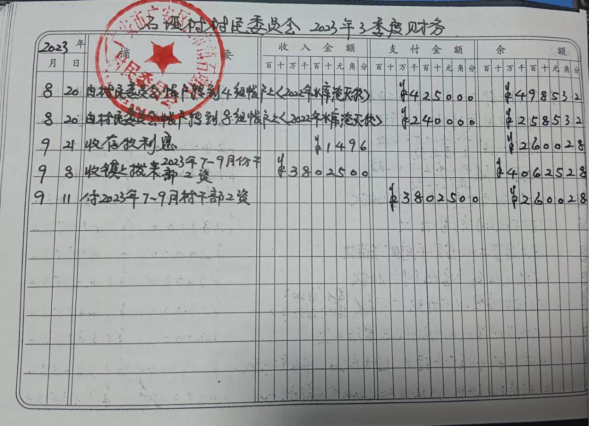 石垭村村民委员会 2023年3季度财务
2023年 摘要 收入金额 支付金额 余额
月 日 百十万千百十元角分 百十万千百十元角分 百十万千百十元角分
8 20 由村民委员会帐户转到4组帐户上(2022年水库淹没款) ¥425000 ¥498532
8 20 由村民委员会帐户转到8组帐户上(2022年水库淹没款) ¥240000 ¥258532
9 21 收存款利息 ¥1496 ¥260028
9 8 收镇上拨来2023年7-9月份干部工资 ¥3802500 ¥4062528
9 11 付2023年7-9月村干部工资 ¥3802500 ¥260028